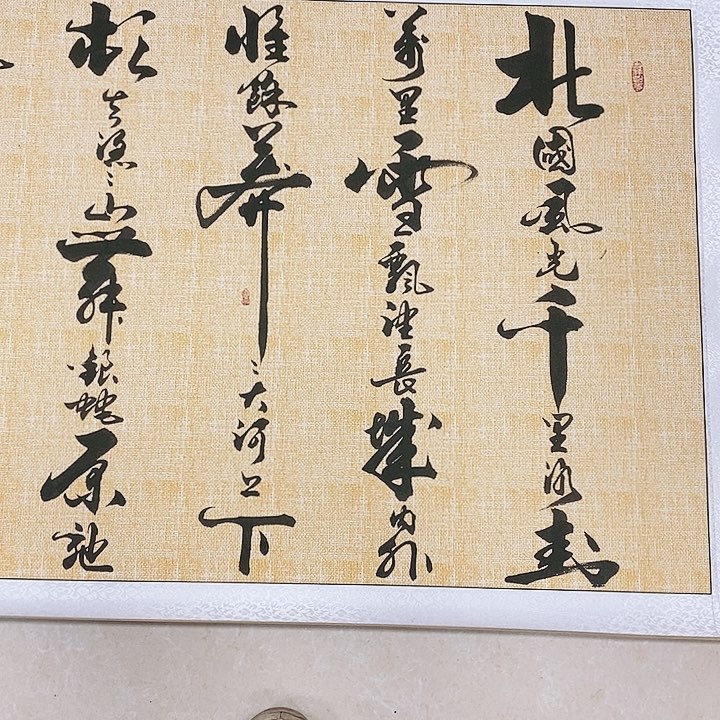 北國風光千里冰封
萬里雪飄望長城內外
惟餘莽々大河上下
頓失滔々山舞銀蛇原馳